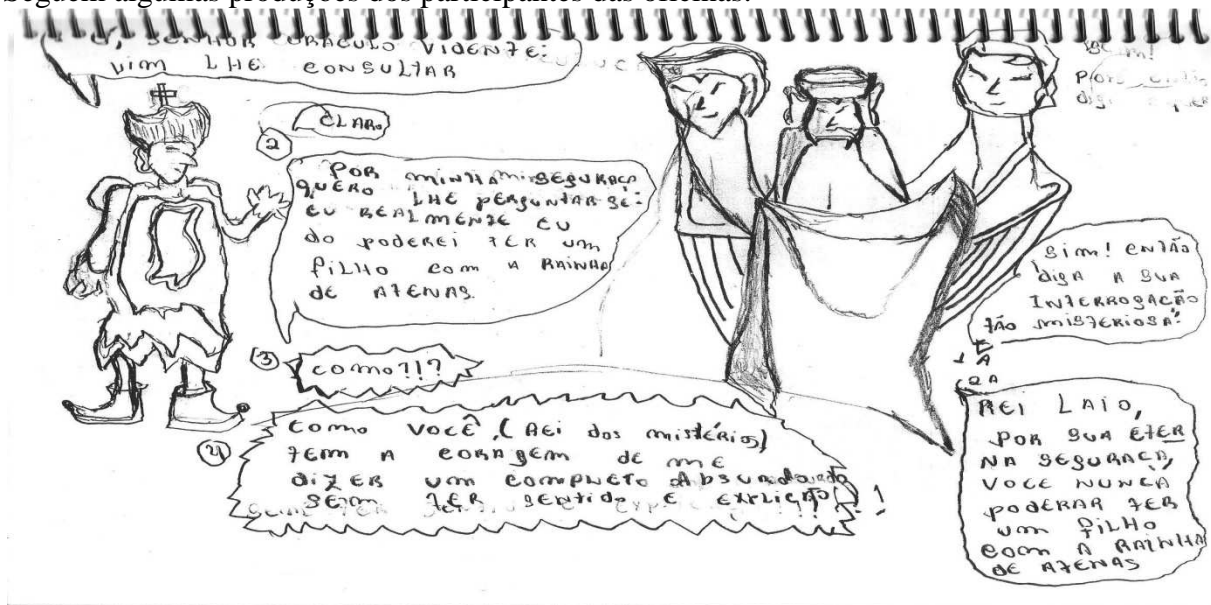 Seguem algumas produções dos participantes das oficinas:
Ó, SENHOR ORÁCULO VIDENTE:
VIM LHE CONSULTAR
2
CLARO
POR MINHA MINSEGURAÇA
QUERO LHE PERGUNTAR SE:
EU REALMENTE EU
DO PODEREI TER UM
FILHO COM A RAINHA
DE ATENAS.
3
COMO?!?
4
COMO VOCÊ, (REI DOS MISTÉRIOS)
TEM A CORAGEM DE ME
DIZER UM COMPLETO ABSURDO
SEM TER SENTIDO E EXPLICAÇÃO!!
SIM! ENTÃO
DIGA A SUA
INTERROGAÇÃO
TÃO MISTÉRIOSA!
REI LAIO,
POR SUA ETER
NA SEGURAÇA,
VOCE NUNCA
PODERAR TER
UM FILHO
COM A RAINHA
DE ATENAS